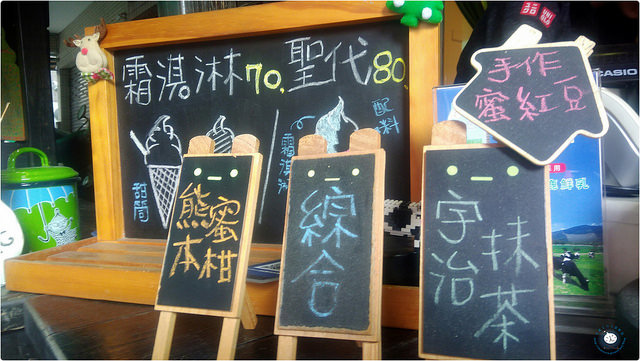 霜淇淋70. 聖代80.
甜筒
霜淇淋
配料
手作
蜜紅豆
CASIO
熊本
蜜柑
綜合
宇治
抹茶
鮮乳